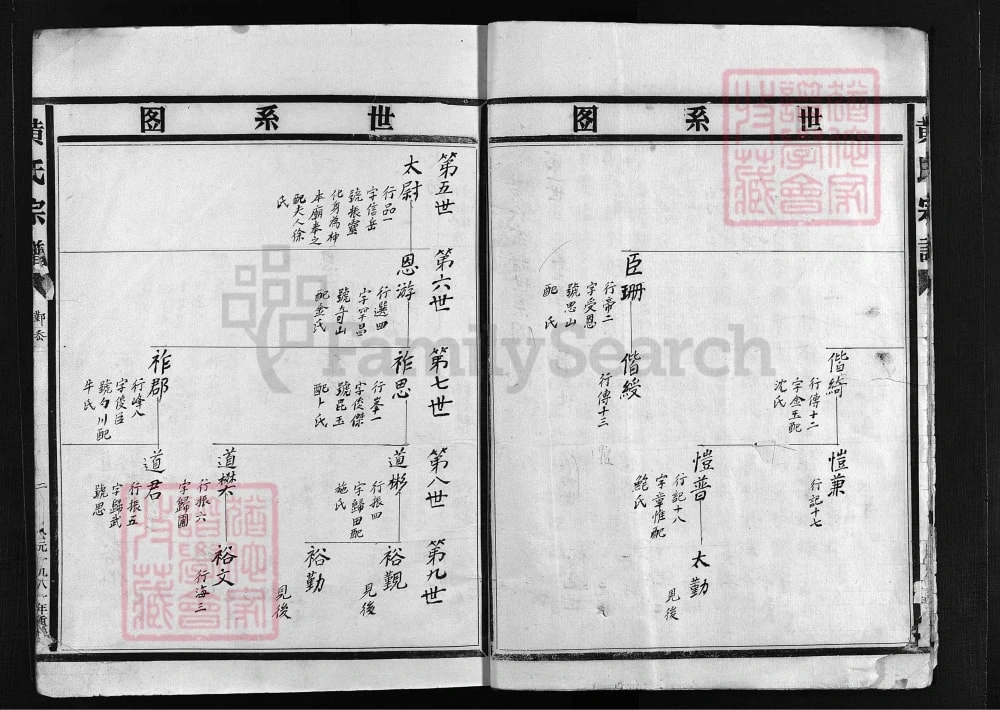 世系图
臣珊
行帝二
字受恩
號思山
配 氏
偕綺
行傳十二
字金玉配
沈氏
偕綬
行傳十三
愷蒹
行記十七
愷普
行記十八
字章惟配
鮑氏
太勤
見後
世系图
第五世
太尉
行品一
字信岳
號振靈
化身為神
本廟奉之
配夫人徐
氏
第六世
恩游
行選四
字罕昌
號可山
配金氏
第七世
祚思
行峯一
字俊傑
號昆玉
配卜氏
祚郡
行峰八
字俊臣
號勺川配
牛氏
第八世
道彬
行振四
字歸田配
施氏
道樊
行振六
字歸圃
道君
行振五
字歸武
號思
第九世
裕觀
見後
裕勤
見後
裕文
行海三
黄氏宗譜
二
FamilySearch